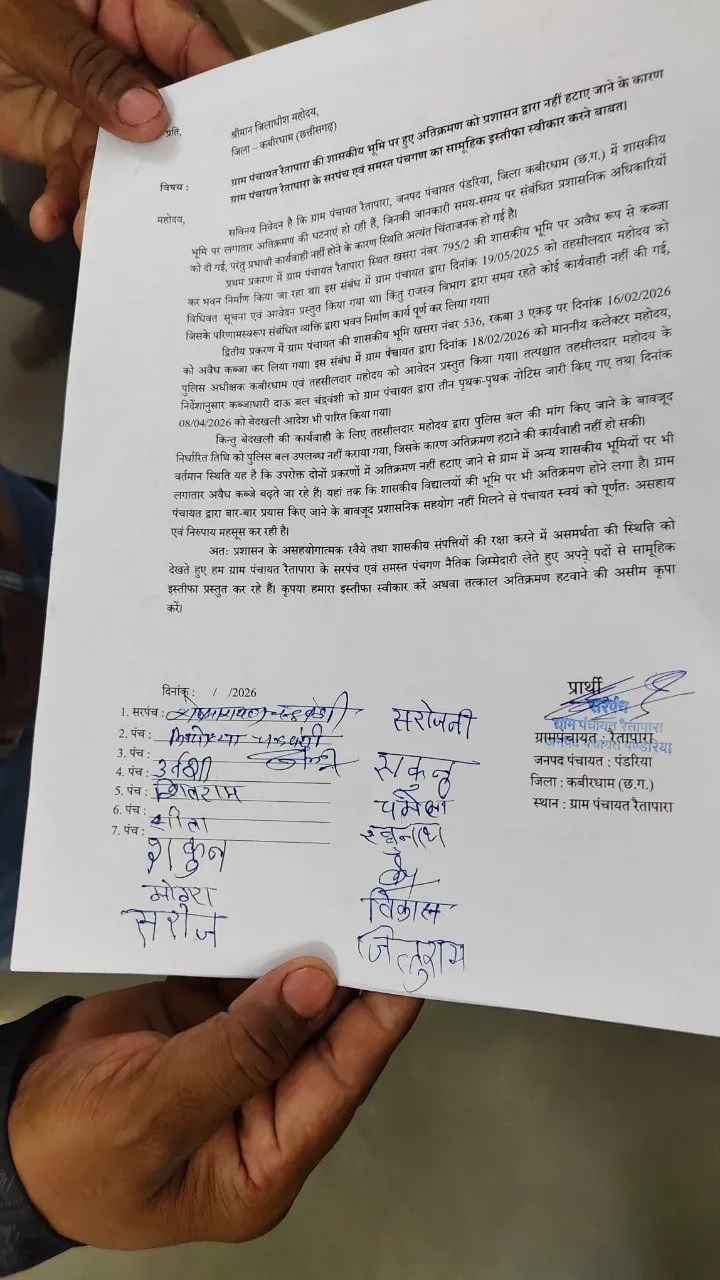 प्रति,
श्रीमान जिलाधीश महोदय,
जिला – कबीरधाम (छत्तीसगढ़)
विषय : ग्राम पंचायत रैतापारा की शासकीय भूमि पर हुए अतिक्रमण को प्रशासन द्वारा नहीं हटाए जाने के कारण
ग्राम पंचायत रैतापारा के सरपंच एवं समस्त पंचगण का सामूहिक इस्तीफा स्वीकार करने बाबत।
महोदय,
सविनय निवेदन है कि ग्राम पंचायत रैतापारा, जनपद पंचायत पंडरिया, जिला कबीरधाम (छ.ग.) में शासकीय
भूमि पर लगातार अतिक्रमण की घटनाएं हो रही हैं, जिनकी जानकारी समय-समय पर संबंधित प्रशासनिक अधिकारियों
को दी गई, परंतु प्रभावी कार्यवाही नहीं होने के कारण स्थिति अत्यंत चिंताजनक हो गई है।
प्रथम प्रकरण में ग्राम पंचायत रैतापारा स्थित खसरा नंबर 795/2 की शासकीय भूमि पर अवैध रूप से कब्जा
कर भवन निर्माण किया जा रहा था। इस संबंध में ग्राम पंचायत द्वारा दिनांक 19/05/2025 को तहसीलदार महोदय को
विधिवत सूचना एवं आवेदन प्रस्तुत किया गया था। किंतु राजस्व विभाग द्वारा समय रहते कोई कार्यवाही नहीं की गई,
जिसके परिणामस्वरूप संबंधित व्यक्ति द्वारा भवन निर्माण कार्य पूर्ण कर लिया गया।
द्वितीय प्रकरण में ग्राम पंचायत की शासकीय भूमि खसरा नंबर 536, रकबा 3 एकड़ पर दिनांक 16/02/2026
को अवैध कब्जा कर लिया गया। इस संबंध में ग्राम पंचायत द्वारा दिनांक 18/02/2026 को माननीय कलेक्टर महोदय,
पुलिस अधीक्षक कबीरधाम एवं तहसीलदार महोदय को आवेदन प्रस्तुत किया गया। तत्पश्चात तहसीलदार महोदय के
निर्देशानुसार कब्जाधारी दाऊ बल चंद्रवंशी को ग्राम पंचायत द्वारा तीन पृथक-पृथक नोटिस जारी किए गए तथा दिनांक
08/04/2026 को बेदखली आदेश भी पारित किया गया।
किन्तु बेदखली की कार्यवाही के लिए तहसीलदार महोदय द्वारा पुलिस बल की मांग किए जाने के बावजूद
निर्धारित तिथि को पुलिस बल उपलब्ध नहीं कराया गया, जिसके कारण अतिक्रमण हटाने की कार्यवाही नहीं हो सकी।
वर्तमान स्थिति यह है कि उपरोक्त दोनों प्रकरणों में अतिक्रमण नहीं हटाए जाने से ग्राम में अन्य शासकीय भूमियों पर भी
लगातार अवैध कब्जे बढ़ते जा रहे हैं। यहां तक कि शासकीय विद्यालयों की भूमि पर भी अतिक्रमण होने लगा है। ग्राम
पंचायत द्वारा बार-बार प्रयास किए जाने के बावजूद प्रशासनिक सहयोग नहीं मिलने से पंचायत स्वयं को पूर्णतः असहाय
एवं निरुपाय महसूस कर रही है।
अतः प्रशासन के असहयोगात्मक रवैये तथा शासकीय संपत्तियों की रक्षा करने में असमर्थता की स्थिति को
देखते हुए हम ग्राम पंचायत रैतापारा के सरपंच एवं समस्त पंचगण नैतिक जिम्मेदारी लेते हुए अपने पदों से सामूहिक
इस्तीफा प्रस्तुत कर रहे हैं। कृपया हमारा इस्तीफा स्वीकार करें अथवा तत्काल अतिक्रमण हटवाने की असीम कृपा
करें।
दिनांक : / /2026
1. सरपंच :
2. पंच :
3. पंच :
4. पंच : उर्वशी
5. पंच :
6. पंच : शीला
7. पंच :
शकुन
मोंगरा
सरोज
सरोजनी
सकुन
विकास
जितुराम
प्रार्थी
सरपंच
ग्राम पंचायत रैतापारा
जनपद पंचायत पण्डरिया
ग्रामपंचायत : रैतापारा
जनपद पंचायत : पंडरिया
जिला : कबीरधाम (छ.ग.)
स्थान : ग्राम पंचायत रैतापारा